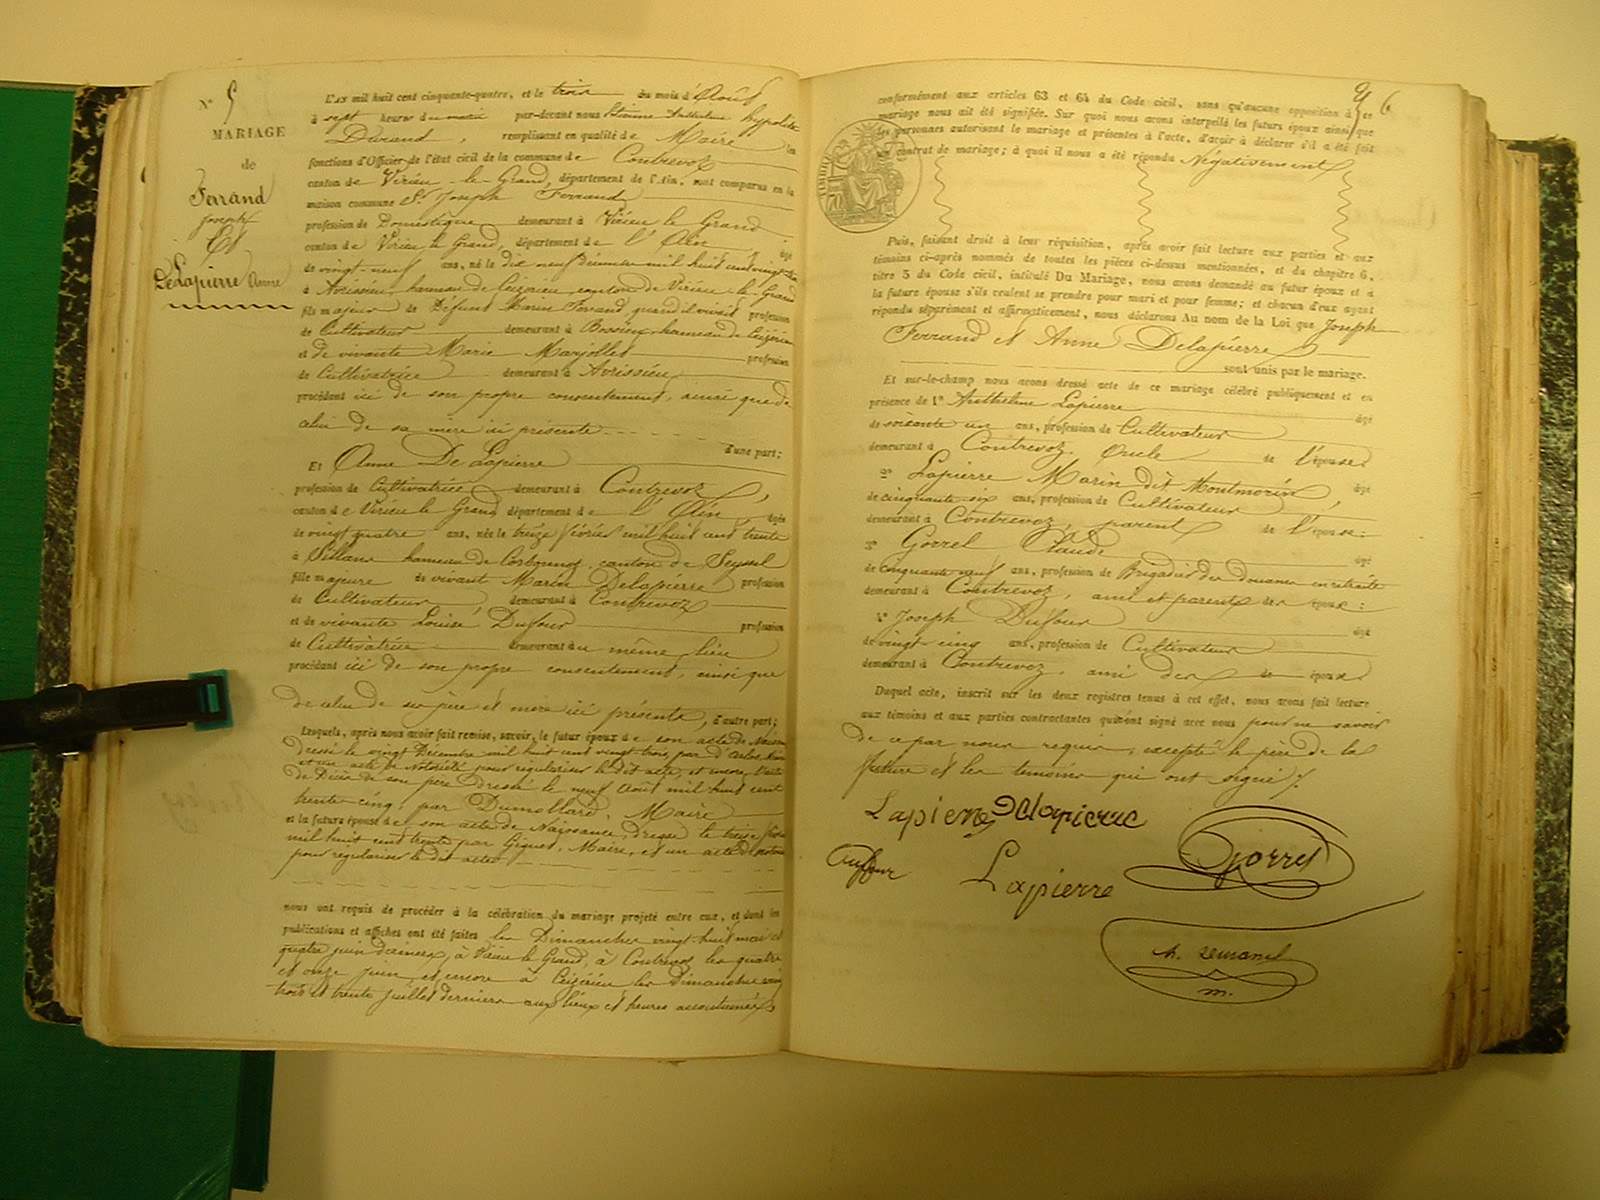 N° 5
MARIAGE
de
Ferrand
Joseph
Et
De Lapierre Anne
L'AN mil huit cent cinquante-quatre, et le trois du mois d'Août
à sept heures du matin par-devant nous Etienne Anthelme hypolite
Durand, remplissant en qualité de Maire les
fonctions d'Officier de l'état civil de la commune de Contrevoz
canton de Virieu-le-Grand, département de l'Ain, sont comparus en la
maison commune Sr Joseph Ferrand
profession de Domestique demeurant à Virieu le Grand
canton de Virieu le Grand, département de l'Ain, âgé
de vingt-neuf ans, né le dix neuf Décembre mil huit cent vingt
à Avrissieu, hameau de Ceizerieu, canton de Virieu-le-Grand
fils majeur de Défunt Marin Ferrand, quand il vivait profession
de Cultivateur demeurant à hameau de Ceizerieu
et de vivante Marie Marjollet profession
de Cultivatrice demeurant à Avrissieu
procédant ici de son propre consentement, ainsi que de
celui de sa mère ici présente d'une part;
Et Anne De Lapierre
profession de Cultivatrice demeurant à Contrevoz,
canton de Virieu le Grand département de l'Ain, âgée
de vingt quatre ans, née le treize février mil huit cent trente
à Sillans hameau de Corbonod, canton de Seyssel
fille majeure de vivant Marin Delapierre profession
de Cultivateur, demeurant à Contrevoz
et de vivante Louise Dufour profession
de Cultivatrice demeurant au même lieu
procédant ici de son propre consentement, ainsi que
de celui de ses père et mère ici présents, d'autre part;
Lesquels, après nous avoir fait remise, savoir, le futur époux de son acte de Naissance
dressé le vingt Décembre mil huit cent vingt trois, par d'Arlos, Maire
et un acte de Notoriété pour régulariser le dit acte, et encore l'acte
de Décès de son père dressé le neuf Août mil huit cent
trente-cinq, par Dumollard, Maire
et la future épouse de son acte de Naissance, dressé le treize février
mil huit cent trente par Maire, et un acte de notoriété
pour régulariser le dit acte
nous ont requis de procéder à la célébration du mariage projeté entre eux, et dont les
publications et affiches ont été faites les Dimanches vingt-huit mai et
quatre juin derniers, à Virieu le Grand, à Contrevoz les quatre
et onze juin, et encore à Ceizerieu les Dimanches vingt
trois et trente juillet derniers aux lieux et heures accoutumées
6
conformément aux articles 63 et 64 du Code civil, sans qu'aucune opposition à ces
mariage nous ait été signifiée. Sur quoi nous avons interpellé les futurs époux ainsi que
les personnes autorisant le mariage et présentes à l'acte, d'avoir à déclarer s'il a été fait
un contrat de mariage; à quoi il nous a été répondu Négativement
TIMBRE
Puis, faisant droit à leur réquisition, après avoir fait lecture aux parties et aux
témoins ci-après nommés de toutes les pièces ci-dessus mentionnées, et du chapitre 6,
titre 5 du Code civil, intitulé Du Mariage, nous avons demandé au futur époux et à
la future épouse s'ils veulent se prendre pour mari et pour femme; et chacun d'eux ayant
répondu séparément et affirmativement, nous déclarons Au nom de la Loi que Joseph
Ferrand et Anne Delapierre
sont unis par le mariage.
Et sur-le-champ nous avons dressé acte de ce mariage célébré publiquement et en
présence de 1° Anthelme Lapierre âgé
de soixante un ans, profession de Cultivateur
demeurant à Contrevoz. Oncle de l'épouse;
2° Lapierre Marin dit Montmorin, âgé
de cinquante-six ans, profession de Cultivateur
demeurant à Contrevoz, parent de l'épouse;
3° Gorrel Claude âgé
de cinquante neuf ans, profession de Brigadier des Douanes en retraite
demeurant à Contrevoz, ami et parent des époux;
4° Joseph Dufour âgé
de vingt-cinq ans, profession de Cultivateur
demeurant à Contrevoz, ami des époux.
Duquel acte, inscrit sur les deux registres tenus à cet effet, nous avons fait lecture
aux témoins et aux parties contractantes qui n'ont signé avec nous pour ne savoir
de ce par nous requis, excepté le père de la
future et les témoins qui ont signé.
Lapierre Delapierre
Gorrel
Duffour
Lapierre
h. Durand
m.